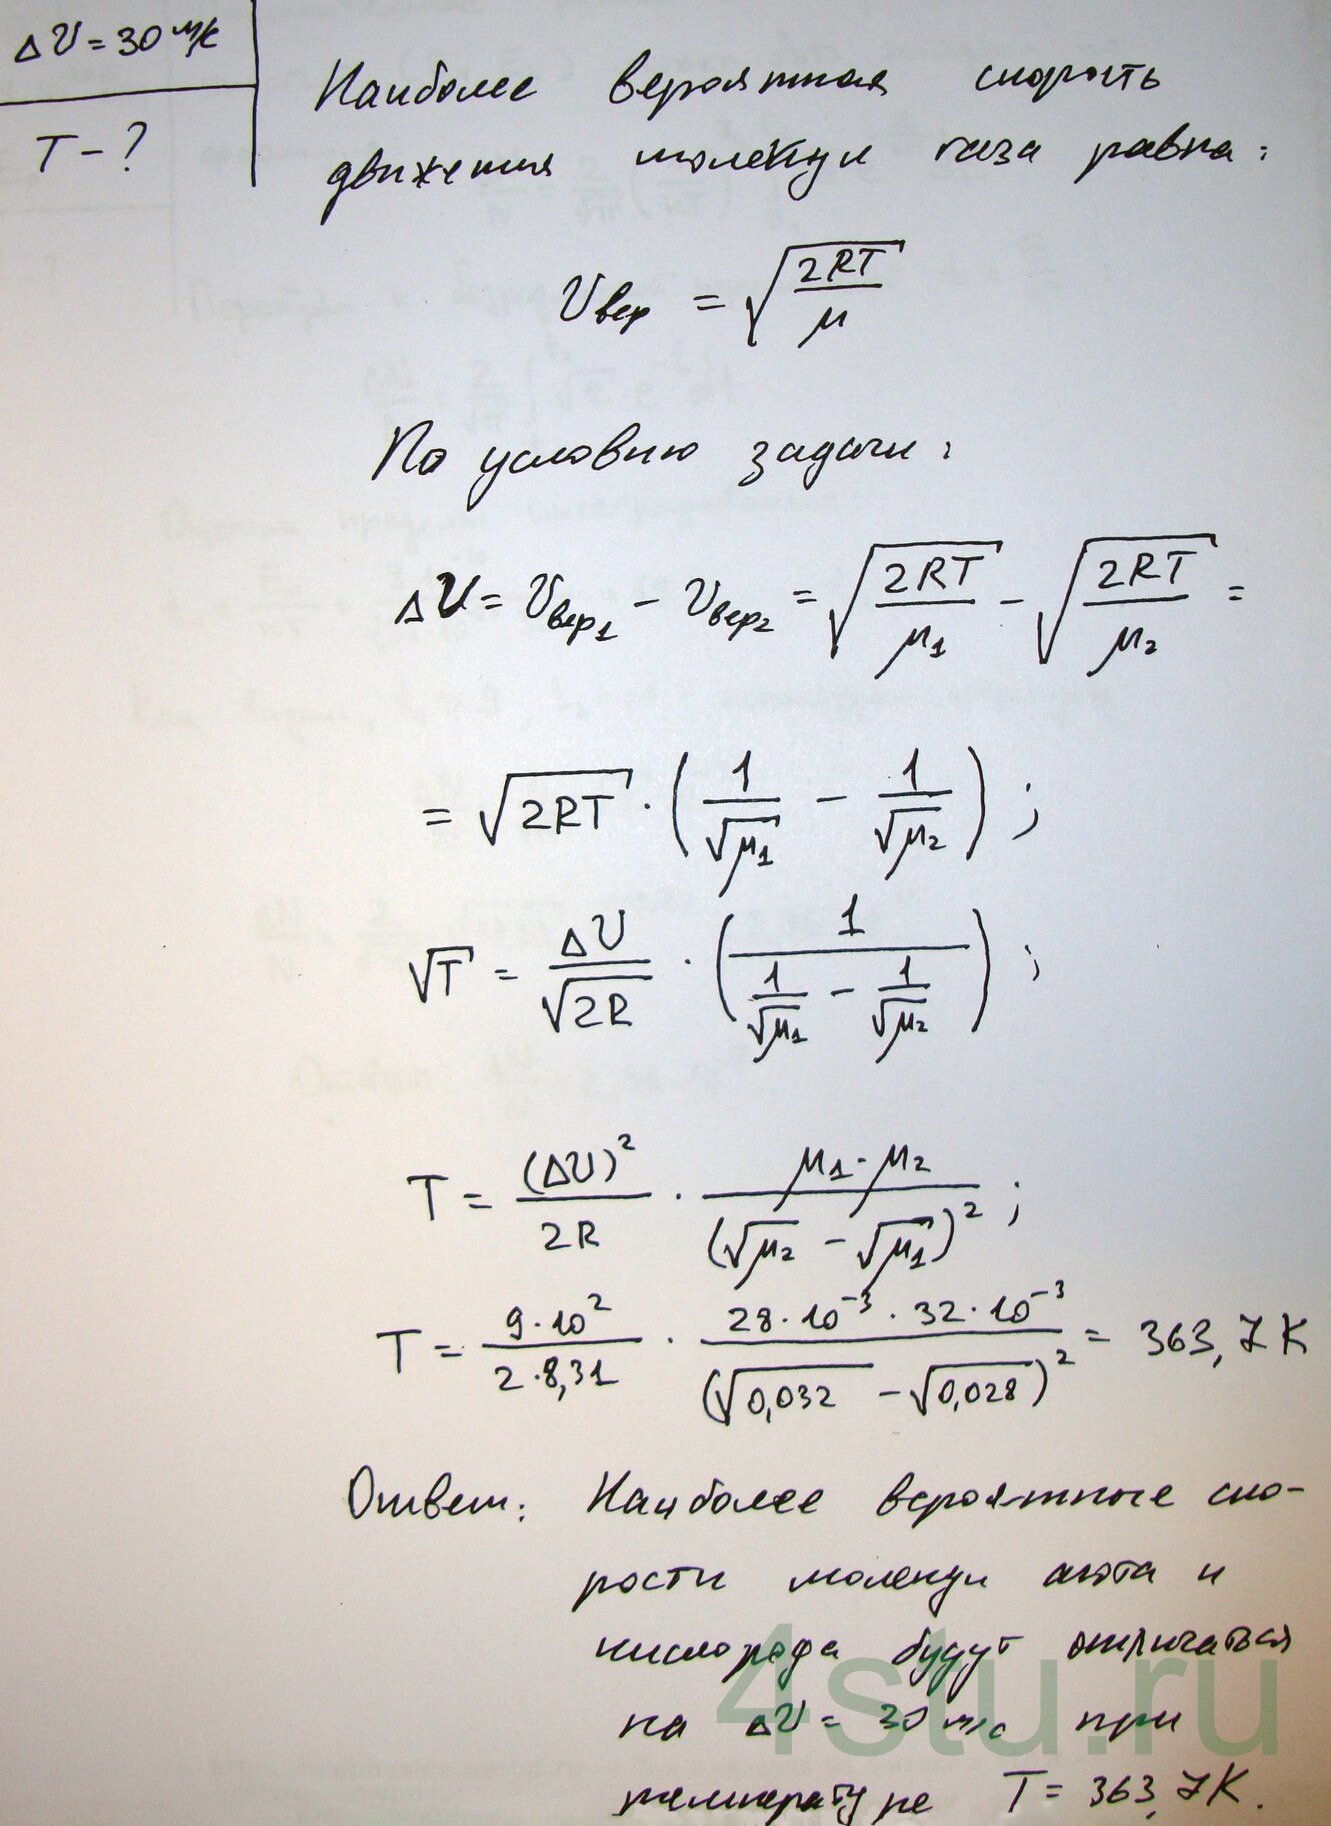 ΔU = 30 м/с
T - ?
Наиболее вероятная скорость
движения молекул газа равна:
Uвер = √(2RT/μ)
По условию задачи:
ΔU = Uвер1 - Uвер2 = √(2RT/μ1) - √(2RT/μ2) =
= √(2RT) · (1/√μ1 - 1/√μ2) ;
√T = ΔU/√(2R) · (1/(1/√μ1 - 1/√μ2)) ;
T = (ΔU)²/2R · μ1·μ2/(√μ2 - √μ1)² ;
T = 9·10²/2·8,31 · 28·10⁻³·32·10⁻³/(√0,032 - √0,028)² = 363,7 K
Ответ: Наиболее вероятные ско-
рости молекул азота и
кислорода будут отличаться
на ΔU = 30 м/с при
температуре T = 363,7 K.
4stu.ru